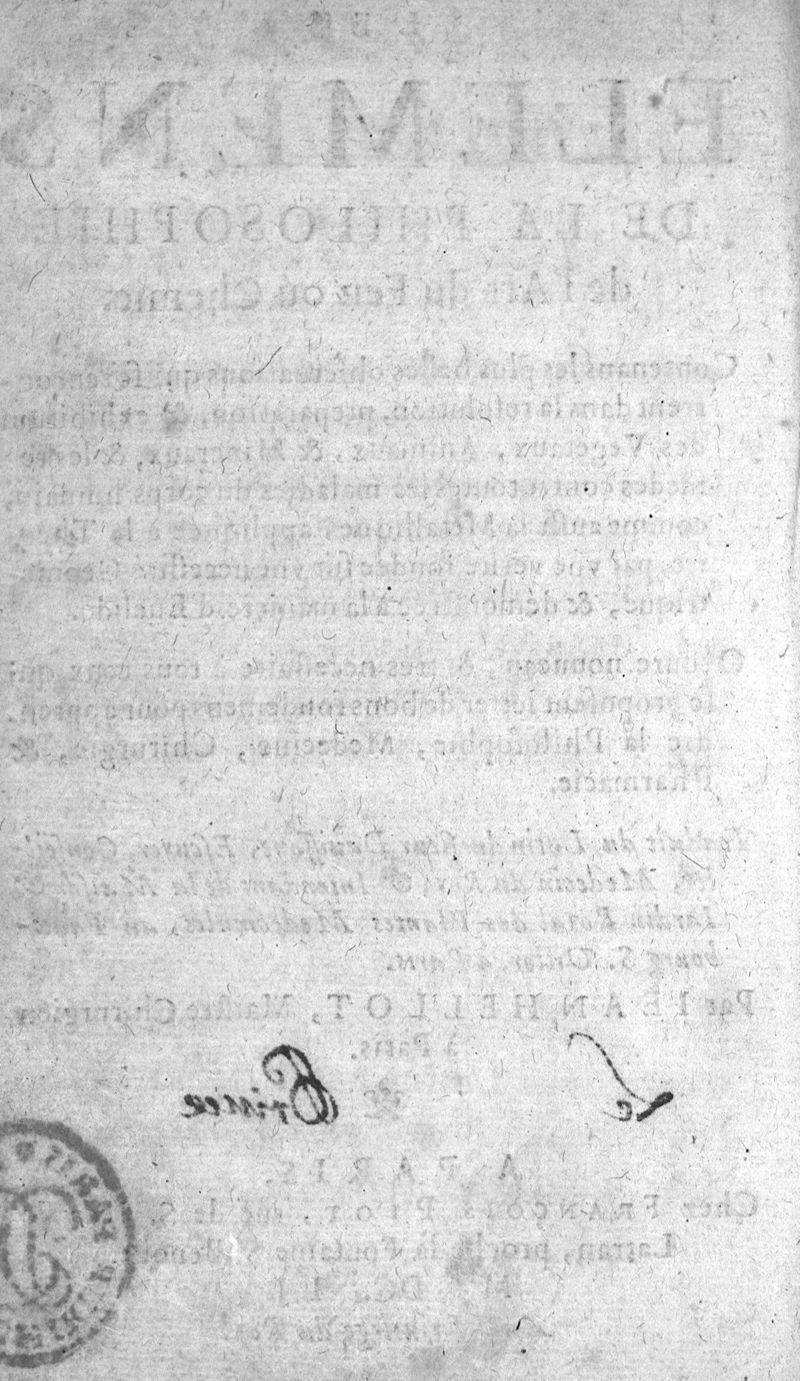 LES
ELEMENS
DE LA PHILOSOPHIE
de l'Art du Feu ou Chemie.
Contenans les plus belles obseruations qui se rencon-
trent dans la resolution, preparation, & exhibition
des Vegetaux, Animaux, & Mineraux, & les re-
medes contre toutes les maladies du corps humain,
comme aussi la Metallique appliquée à la Theo-
rie, par vne verité fondée sur vne necessité Geome-
trique, & demonstrée à la maniere d'Euclide.
Oeuure nouueau, & tres-necessaire à tous ceux qui
se proposent ietter de bons fondemens pour appren-
dre la Philosophie, Medecine, Chirurgie, &
Pharmacie.
Traduit du Latin du sieur Dauissone, Escuyer, Conseil-
ler, Medecin du Roy, & Intendant de la
Iardin Royal des Plantes Medecinales, au Faux-
bourg S. Victor, à Paris.
Par IEAN HELLOT, Maistre Chirurgien
à Paris.
Le Prince
A PARIS,
Chez FRANÇOIS PIOT, rue de S.
Latran, proche la Fontaine S. Benoist
M. DC. LI
Auec Priuilege du Roy.
PARIS